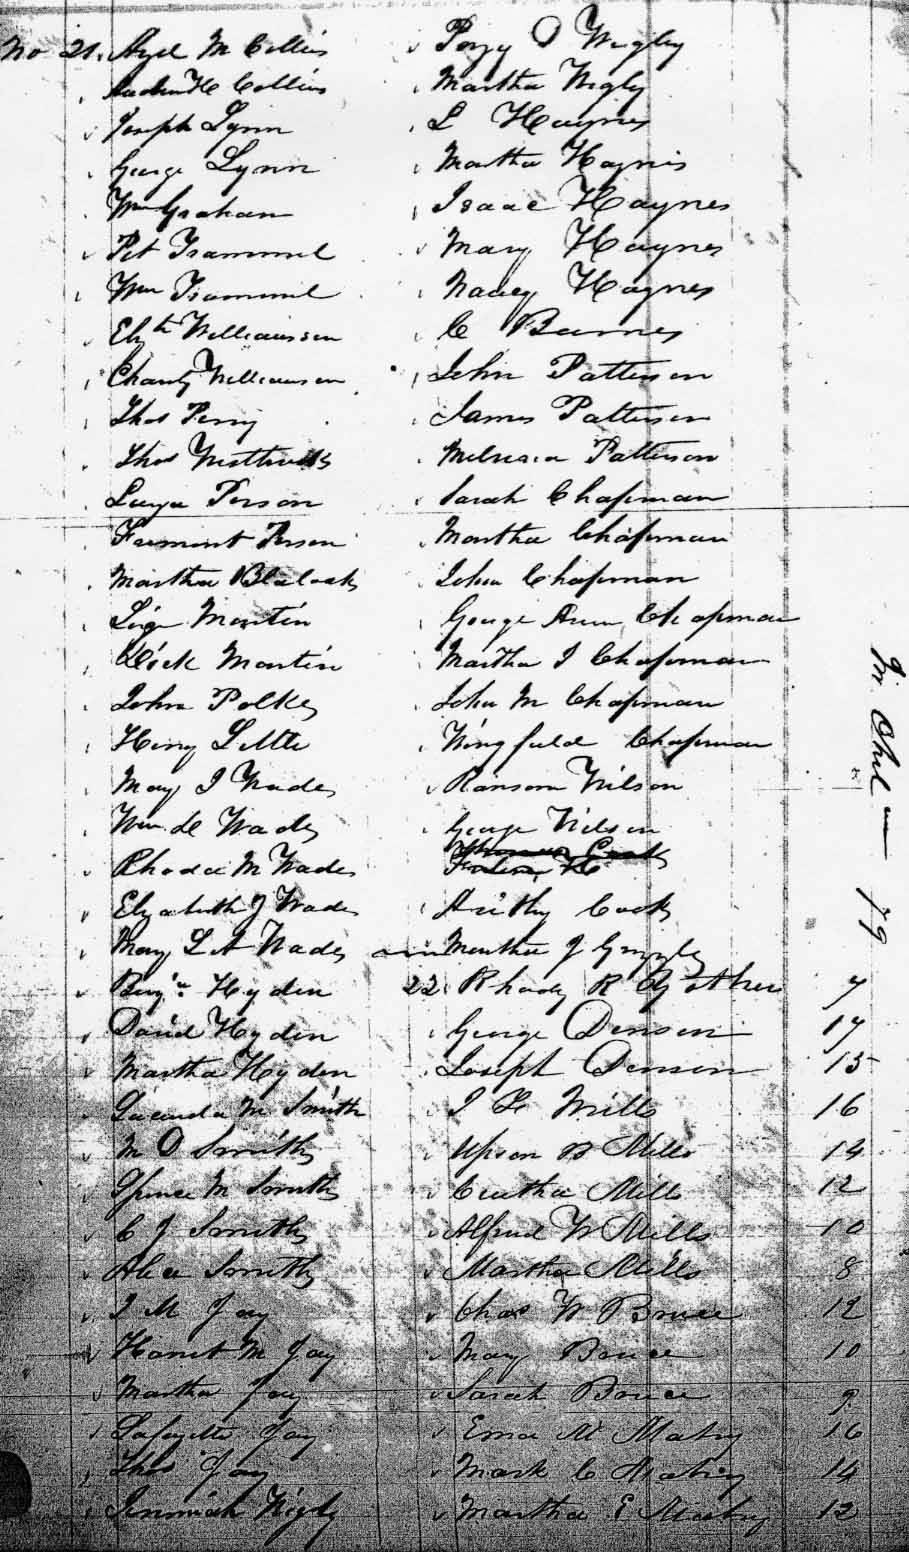 No 21. Azel M Collins
Collins
Joseph Lynn
George Lynn
Wm Graham
Pet Trammel
Wm Trammel
Elizth Williamson
Charity Williamson
Thos Perry
Thos
Person
Fremont Person
Martha Blalock
Martin
Dock Martin
John Polk
Henry Little
Mary J Wade
Wm H Wade
Rhoda M Wade
Elizabeth J Wade
Mary L A Wade
Benjn Hyden
David Hyden
Martha Hyden
Lucinda M Smith
M O Smith
Spence M Smith
C J Smith
Alex Smith
J M Jay
Harriet M Jay
Martha Jay
Lafayette Jay
Thos Jay
Jeremiah Wigly
Perry O Wigly
Martha Wigly
L Haynes
Martha Haynes
Isaac Haynes
Mary Haynes
Nancy Haynes
C Barnes
John Patterson
James Patterson
Patterson
Sarah Chapman
Martha Chapman
John Chapman
George Ann Chapman
Martha J Chapman
John M Chapman
Wingfield Chapman
Ransom Wilson
George Wilson
Cook
Martha J
22 Rhody R 7
George Denson 17
Joseph Denson 15
J F Mills 16
Upson B Mills 14
Mills 12
Alfred W Mills 10
Martha Mills 8
Chas W Bruce 12
Mary Bruce 10
Sarah Bruce 9
M Mabry 16
Mark C Mabry 14
Martha E Mabry 12
79